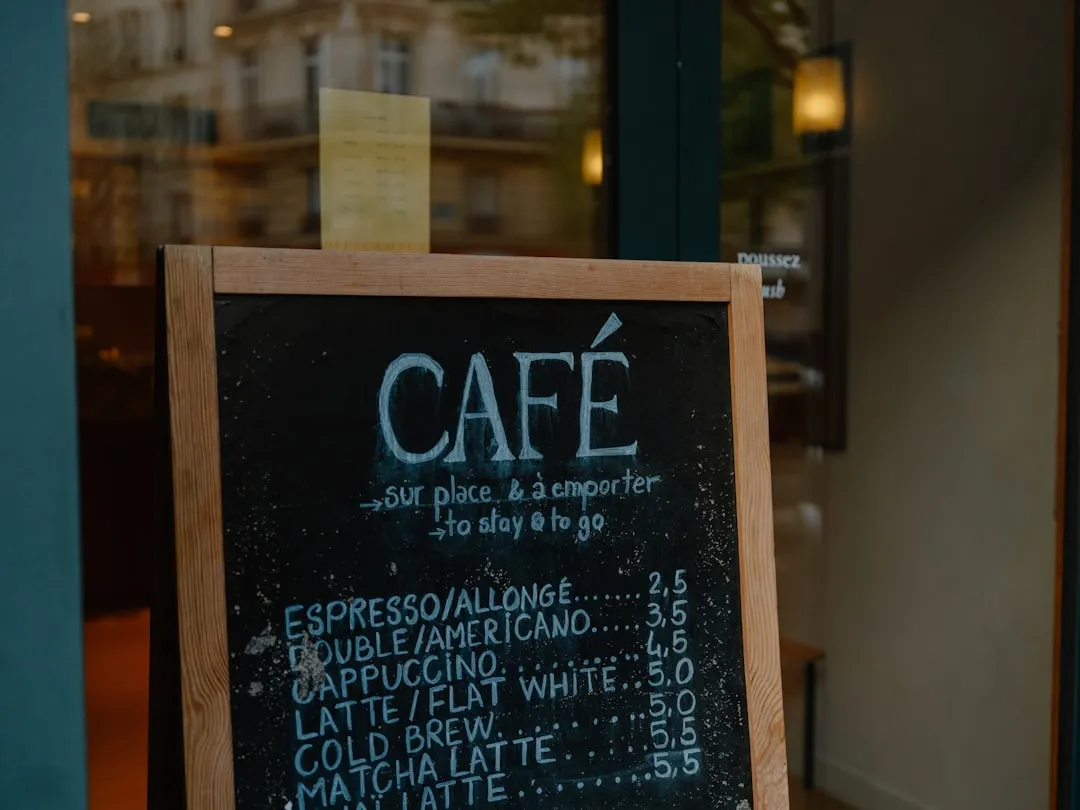 poussez
CAFÉ
→sur place & à emporter
→to stay & to go
ESPRESSO/ALLONGÉ....... 2,5
DOUBLE/AMERICANO..... 3,5
CAPPUCCINO......... 4,5
LATTE/FLAT WHITE.. 5,0
COLD BREW......... 5,0
MATCHA LATTE...... 5,5
LATTE........ 5,5